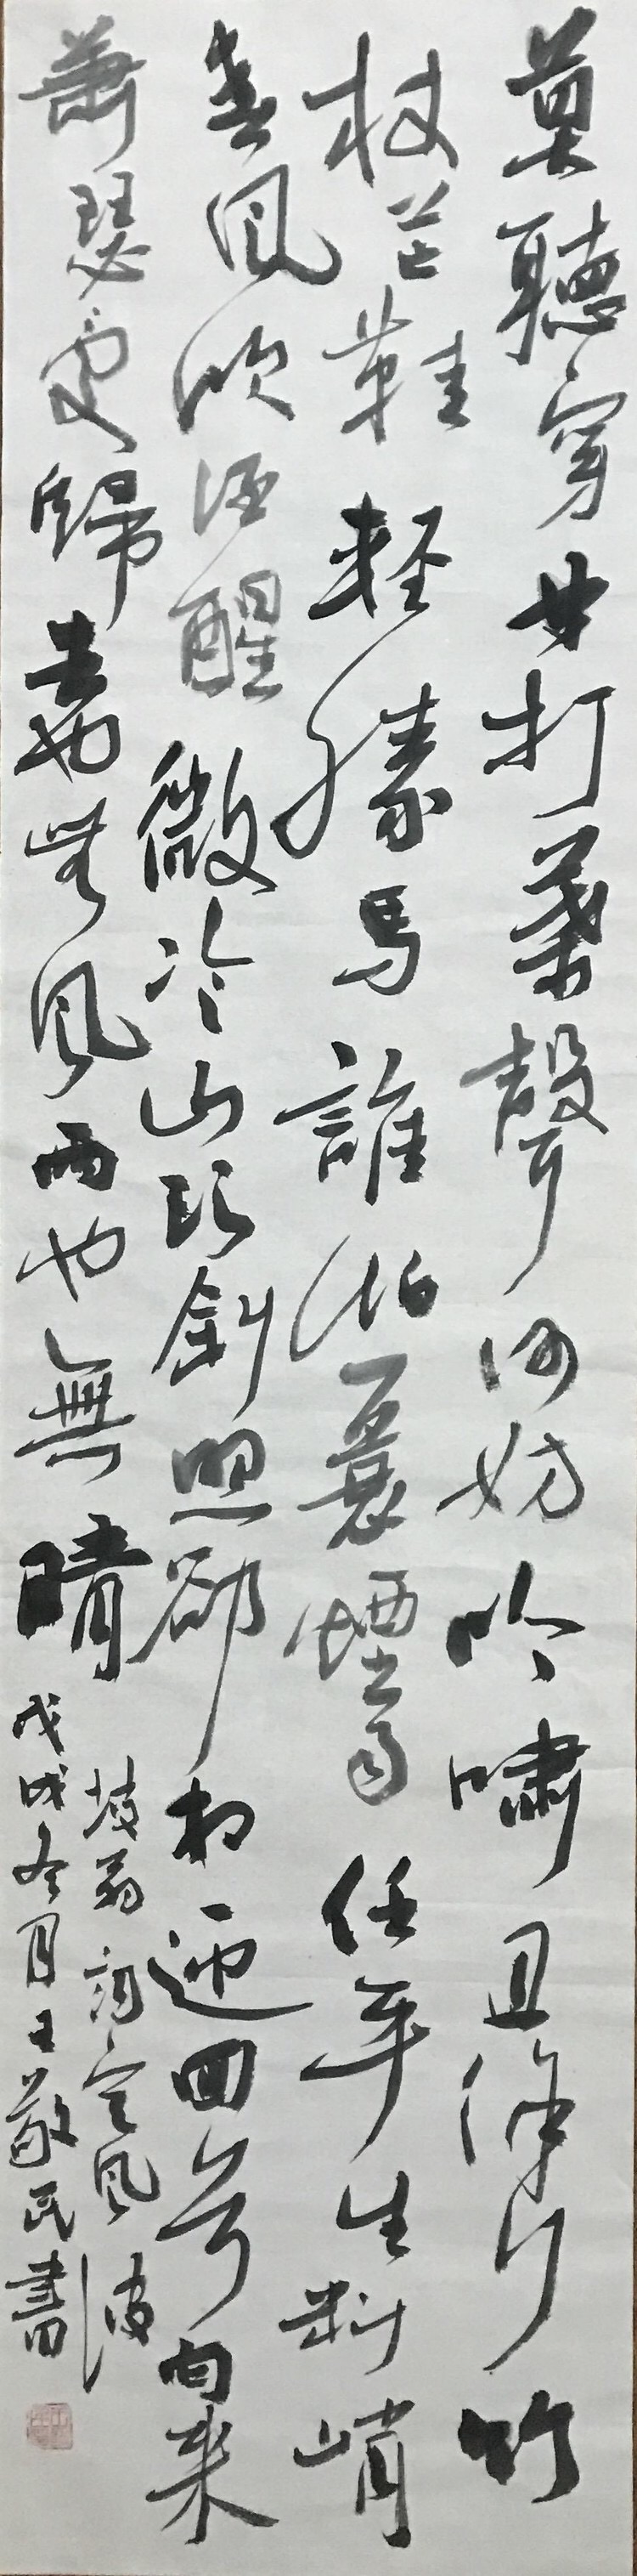 莫聽穿林打葉聲何妨吟嘯且徐行竹
杖芒鞋輕勝馬誰怕一蓑煙雨任平生料峭
春風吹酒醒微冷山頭斜照卻相迎回首向來
蕭瑟處歸去也無風雨也無晴
坡翁詞定風波
戊戌冬月王敬民書